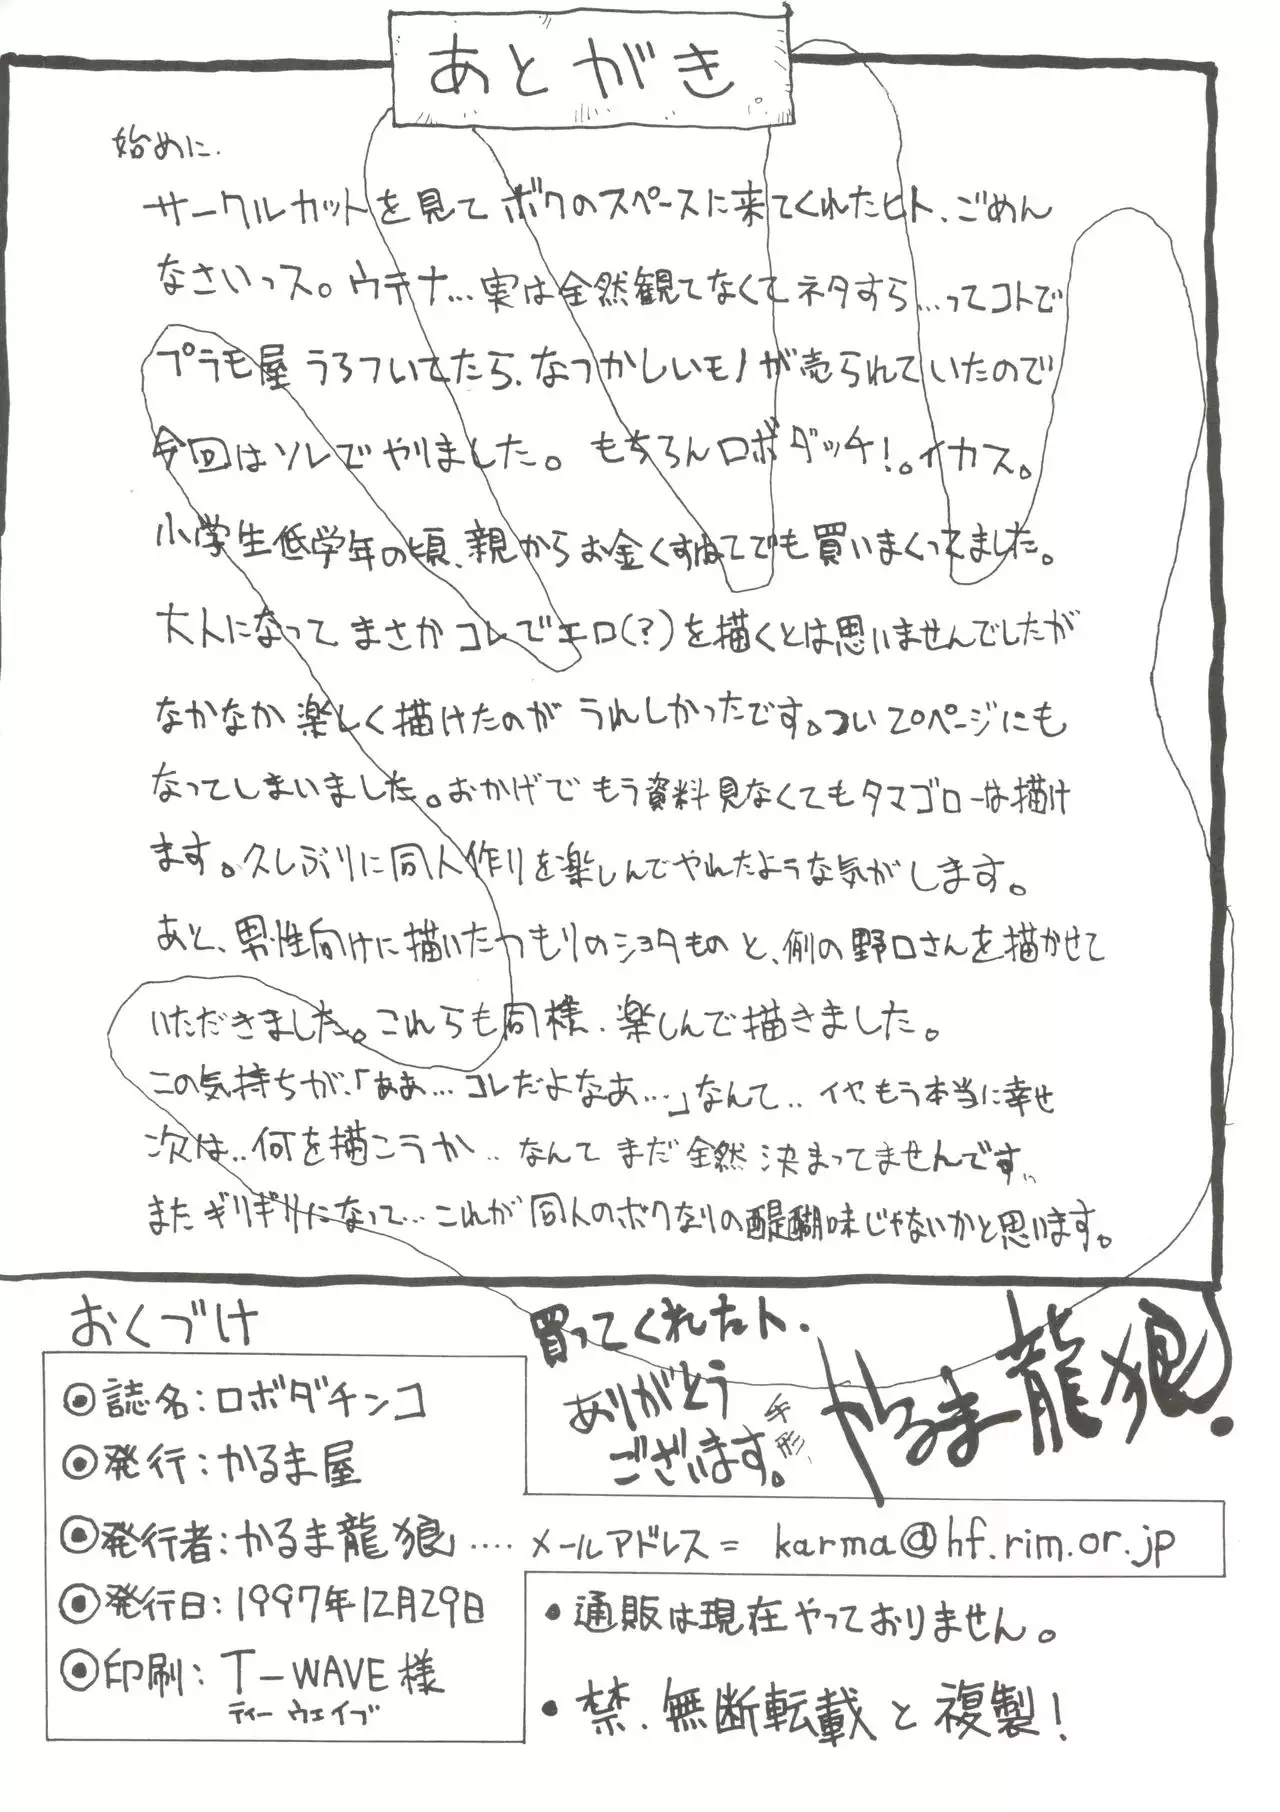 あとがき。
始めに.
サークルカットを見てボクのスペースに来てくれたヒト、ごめん
なさいっス。ウテナ…実は全然観てなくてネタすら…ってコトで
プラモ屋うろついてたら、なつかしいモノが売られていたので
今回はソレでやりました。もちろんロボダッチ!。イカス。
小学生低学年の頃、親からお金くすねてでも買いまくってました。
大人になってまさかコレでエロ(?)を描くとは思いませんでしたが
なかなか楽しく描けたのがうれしかったです。つい20ページにも
なってしまいました。おかげでもう資料見なくてもタマゴローは描け
ます。久しぶりに同人作りを楽しんでやれたような気がします。
あと、男性向けに描いたつもりのショタものと、例の野口さんを描かせて
いただきました。これらも同様、楽しんで描きました。
この気持ちが、「ああ…コレだよなあ…」なんて..イヤ、もう本当に幸せ
次は..何を描こうか..なんてまだ全然決まってませんです..
またギリギリになって…これが同人のボクなりの醍醐味じゃないかと思います。
おくづけ
◎誌名:ロボダチンコ
◎発行:かるま屋
◎発行者:かるま龍狼….メールアドレス= karma@hf.rim.or.jp
◎発行日:1997年12月29日
◎印刷:T-WAVE様
ティーウェイブ
買ってくれたヒト.
ありがとう
ございます。
手形
かるま龍狼.
・通販は現在やっておりません。
・禁.無断転載と複製!